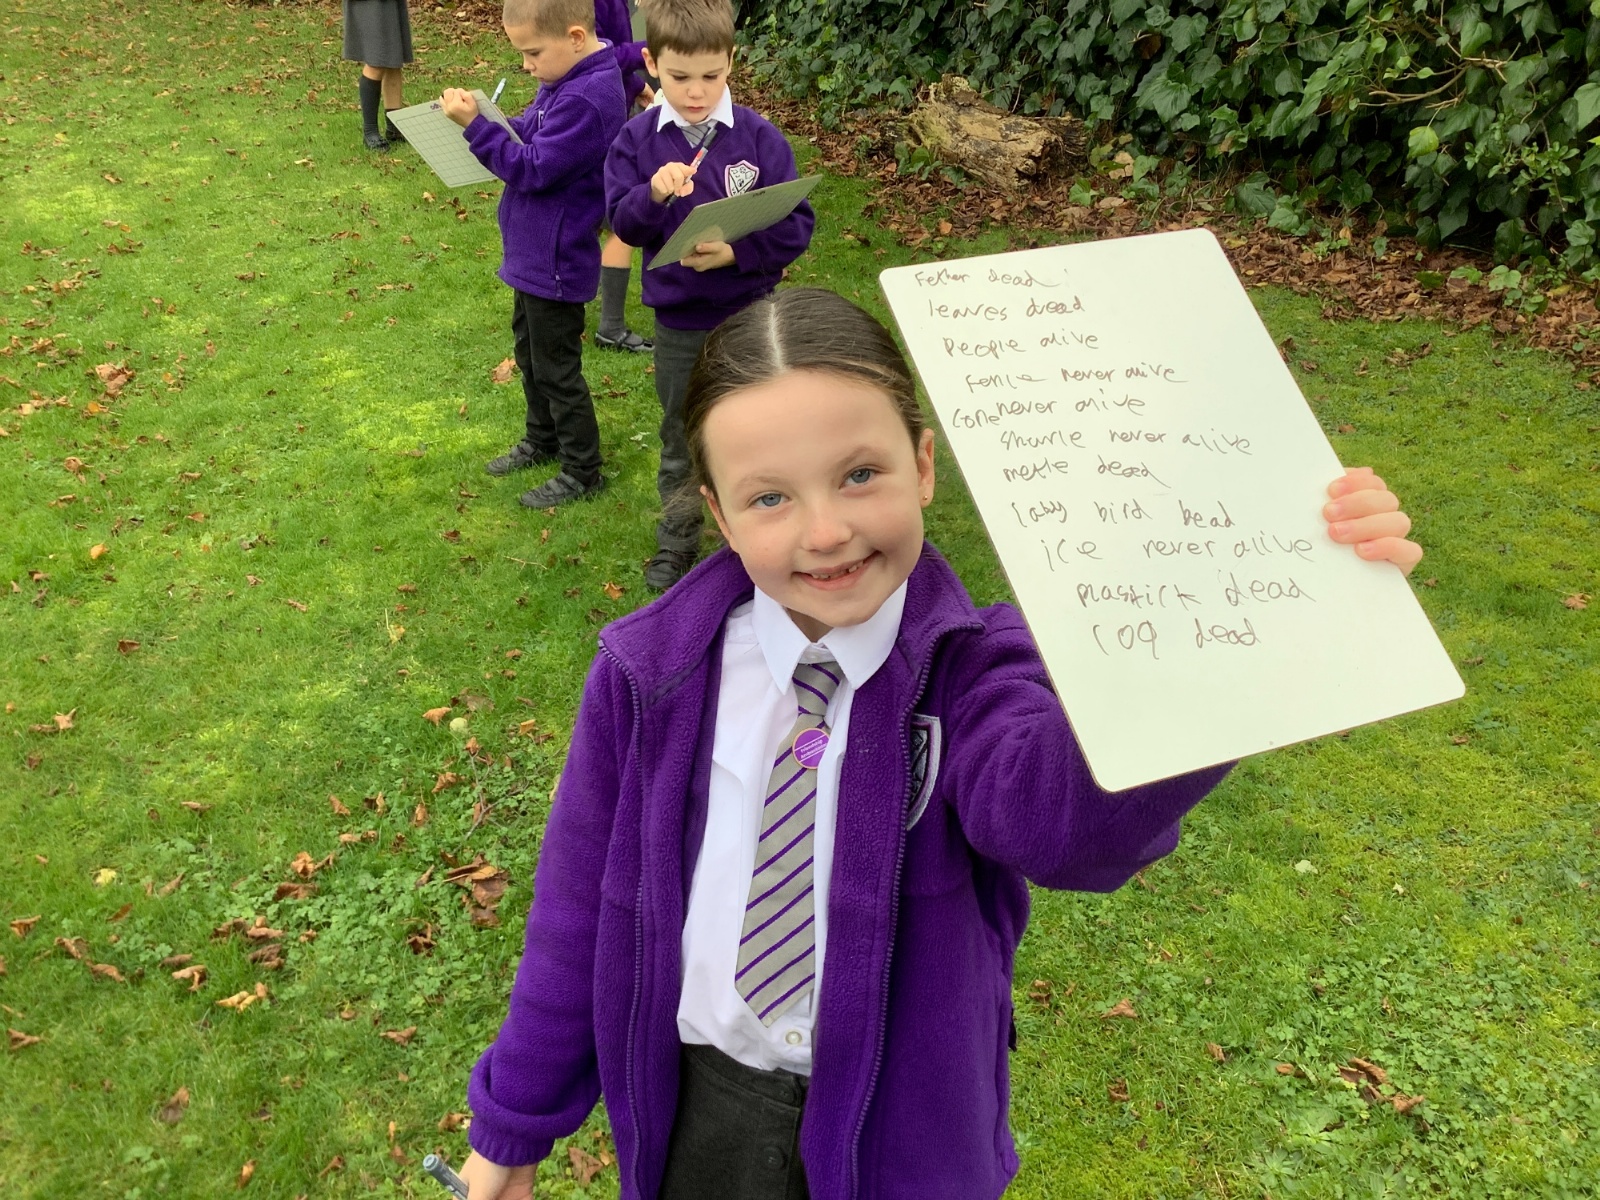 Fether dead
leaves dead
People alive
Fence never alive
Cone never alive
never alive
metle dead
lady bird dead
ice never alive
plastick dead
log dead